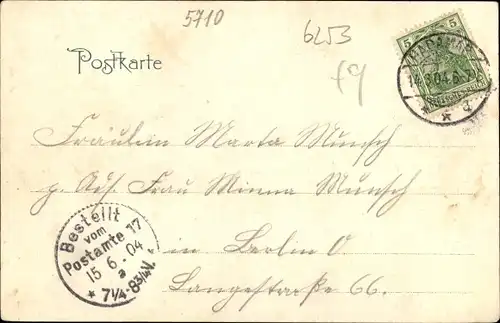 5710
6253
f9
Postkarte
5 5
HADAMAR
14.6.04. 6-7
Fräulein Marta Munsch
p. Adr. Frau Minna Munsch
in Berlin O
Langestraße 66.
Bestellt
vom
Postamte 17
15 6. 04
a
* 7 1/4-8 3/4 V.